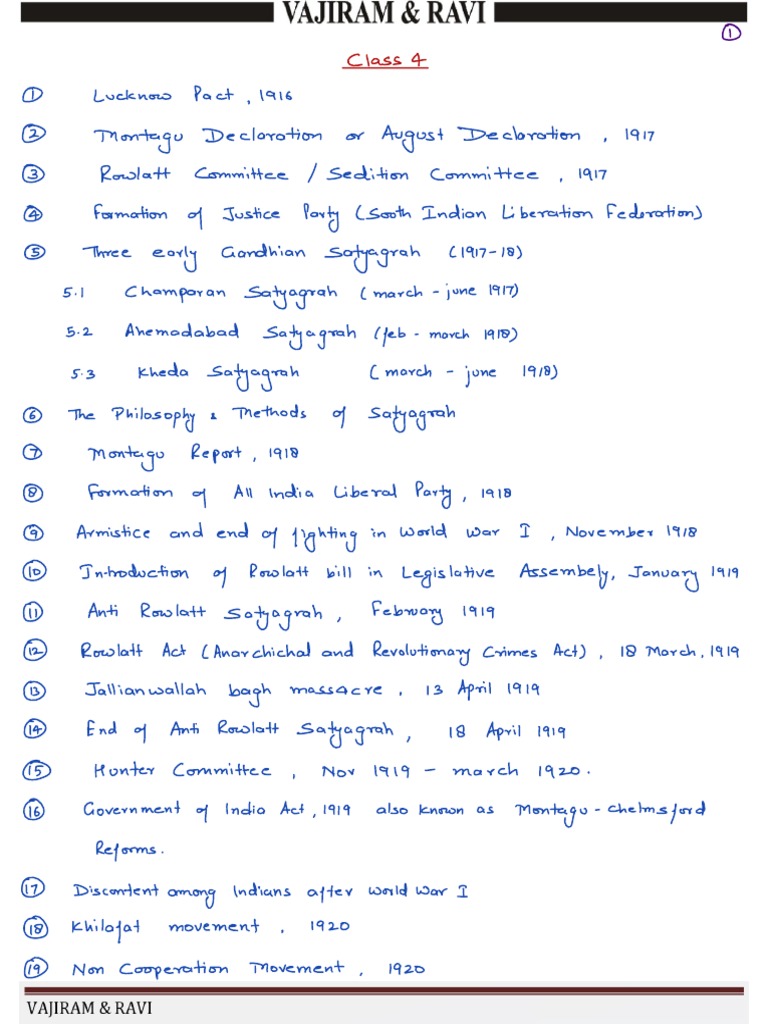 VAJIRAM & RAVI
1
Class 4
1 Lucknow Pact, 1916
2 Montagu Declaration or August Declaration, 1917
3 Rowlatt Committee / Sedition Committee, 1917
4 Formation of Justice Party (South Indian Liberation Federation)
5 Three early Gandhian Satyagrah (1917-18)
5.1 Champaran Satyagrah (march - june 1917)
5.2 Ahemadabad Satyagrah (feb - march 1918)
5.3 Kheda Satyagrah (march - june 1918)
6 The Philosophy & Methods of Satyagrah
7 Montagu Report, 1918
8 Formation of All India Liberal Party, 1918
9 Armistice and end of fighting in World War I, November 1918
10 Introduction of Rowlatt bill in Legislative Assembely, January 1919
11 Anti Rowlatt Satyagrah, February 1919
12 Rowlatt Act (Anarchichal and Revolutionary Crimes Act), 18 March, 1919
13 Jallianwallah bagh massacre, 13 April 1919
14 End of Anti Rowlatt Satyagrah, 18 April 1919
15 Hunter Committee, Nov 1919 - march 1920.
16 Government of India Act, 1919 also known as Montagu-Chelmsford
Reforms.
17 Discontent among Indians after World War I
18 Khilafat movement, 1920
19 Non Cooperation Movement, 1920
VAJIRAM & RAVI